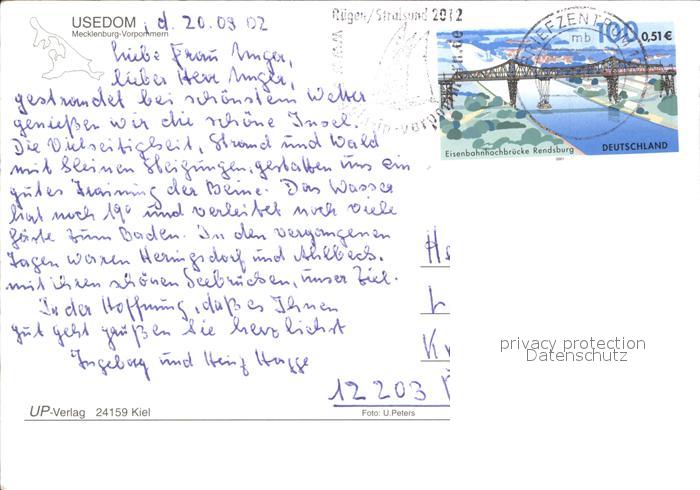 USEDOM
Mecklenburg-Vorpommern
, d. 20.09.02
Liebe Frau Unger,
lieber Herr Unger,
gestrandet bei schönstem Wetter
genießen wir die schöne Insel.
Die Vielseitigkeit, Strand und Wald
mit kleinen Steigungen, gestatten uns ein
gutes Training der Beine. Das Wasser
hat noch 19° und verleitet noch viele
Gäste zum Baden. In den vergangenen
Tagen waren Heringsdorf und Ahlbeck,
mit ihren schönen Seebrücken, unser Ziel.
In der Hoffnung, daß es Ihnen
gut geht grüßen Sie herzlichst
Ingeborg und Heinz Hagge
UP-Verlag 24159 Kiel
Foto: U.Peters
Rügen/Stralsund 2012
BRIEFZENTRUM
mb
100 0,51€
Eisenbahnhochbrücke Rendsburg
2001
DEUTSCHLAND
12203
privacy protection
Datenschutz